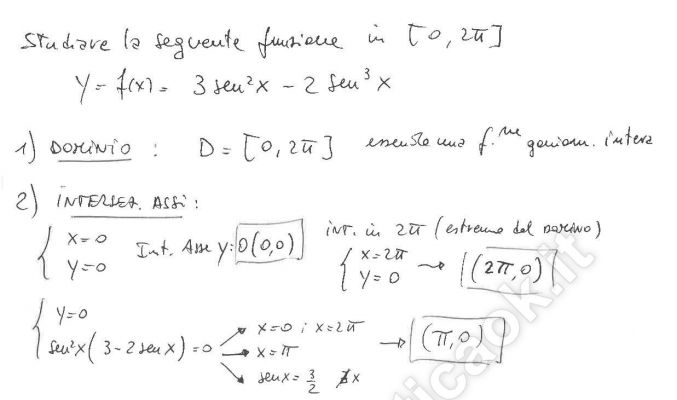 Studiare la seguente funzione in [0, 2π]
Y = f(x) = 3 sen²x - 2 sen³x
1) DOMINIO : D = [0, 2π] essendo una f.ne goniom. intera
2) INTERSEZ. ASSI :
{ x=0 y=0 Int. Asse y: O(0,0)
int. in 2π (estremo del dominio)
{ x=2π y=0 → (2π,0)
{ y=0 sen²x(3-2senx)=0
→ x=0 ; x=2π
→ x=π → (π,0)
→ senx=3/2 ∄x
ticaok.it